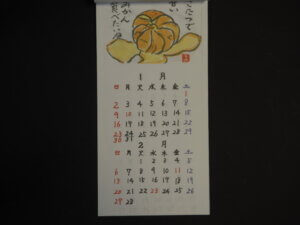 こたつで
甘い
みかん
食べたいな
1 月
日 月 火 水 木 金 土
1
2 3 4 5 6 7 8
9 10 11 12 13 14 15
16 17 18 19 20 21 22
23 24 25 26 27 28 29
30 31
2 月
日 月 火 水 木 金 土
1 2 3 4 5
6 7 8 9 10 11 12
13 14 15 16 17 18 19
20 21 22 23 24 25 26
27 28